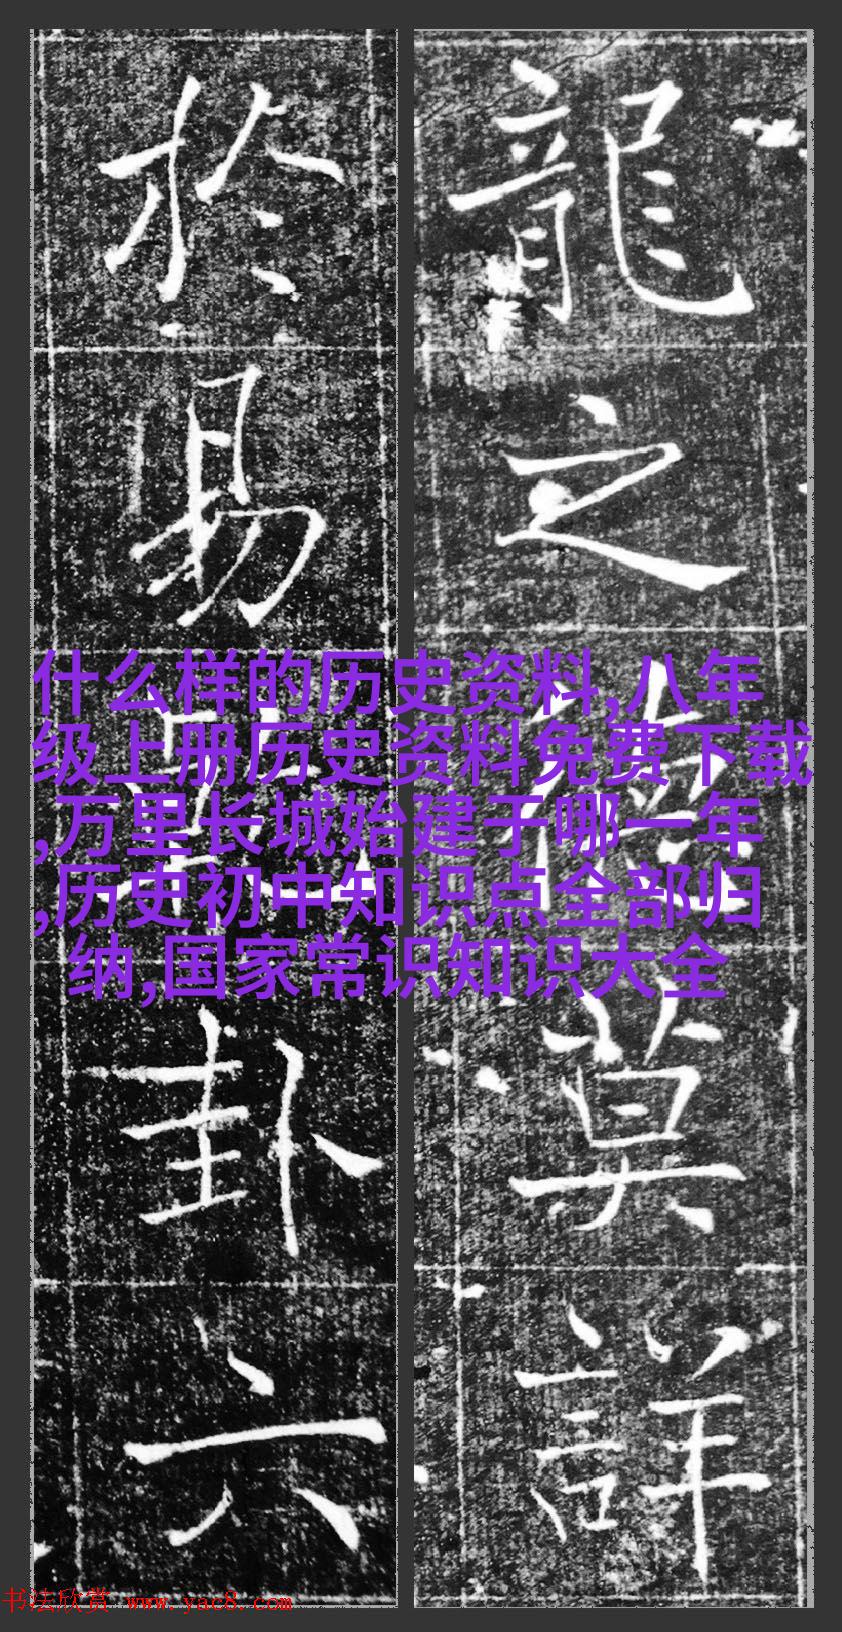 龍之德莫詳
於易是卦六
什么样的历史资料,八年
级上册历史资料免费下载
,万里长城始建于哪一年
,历史初中知识点全部归
纳,国家常识知识大全
书法欣赏 www.yac8.com